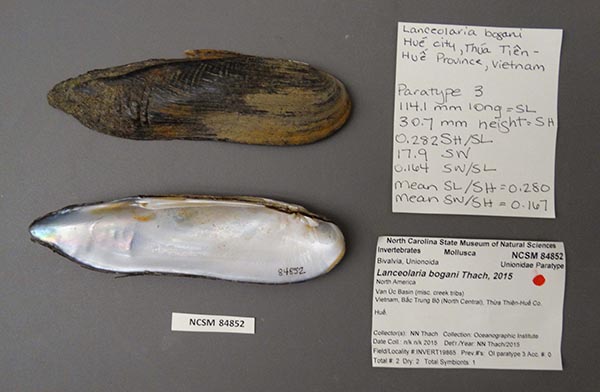 Lanceolaria bogani
Huế city, Thừa Tiên -
Huế Province, Vietnam
Paratype 3
114.1 mm long = SL
30.7 mm height = SH
0.282 SH/SL
17.9 SW
0.164 SW/SL
Mean SL/SH = 0.280
Mean SW/SH = 0.167
84852
NCSM 84852
North Carolina State Museum of Natural Sciences
Invertebrates Mollusca NCSM 84852
Bivalvia, Unionoida Unionidae Paratype
Lanceolaria bogani Thach, 2015
North America
Van Úc Basin (misc. creek tribs)
Vietnam, Bắc Trung Bộ (North Central), Thừa Thiên-Huế Co.
Huế.
Collector(s): NN Thach Collection: Oceanographic Institute
Date Coll.: n/k n/k 2015 Det'r./Year: NN Thach/2015
Field/Locality #:INVERT19865 Prev.#'s: OI paratype 3 Acc. #: 0
Total #: 2 Dry: 2 Total Symbionts: 1